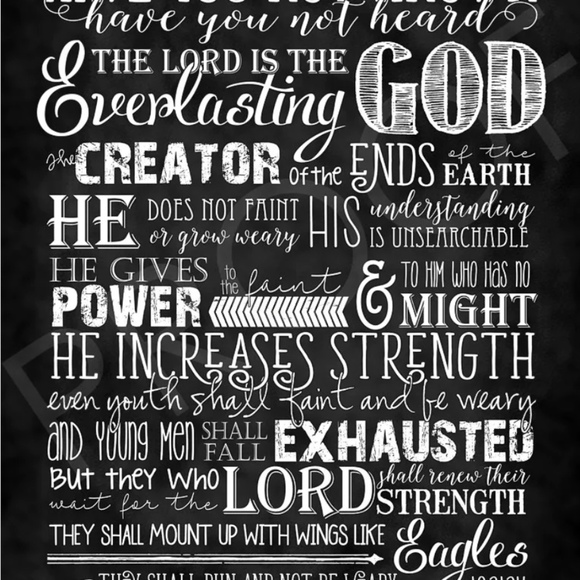 HAVE YOU NOT KNOWN
have you not heard
THE LORD IS THE
Everlasting GOD
the CREATOR of the ENDS of the EARTH
HE DOES NOT FAINT or grow weary HIS understanding IS UNSEARCHABLE
HE GIVES POWER to the faint & TO HIM WHO HAS NO MIGHT
HE INCREASES STRENGTH
even youth shall faint and be weary
and young men SHALL FALL EXHAUSTED
But they who wait for the LORD shall renew their STRENGTH
THEY SHALL MOUNT UP WITH WINGS LIKE
Eagles
THEY SHALL RUN AND NOT BE WEARY
ISAIAH
PROOF